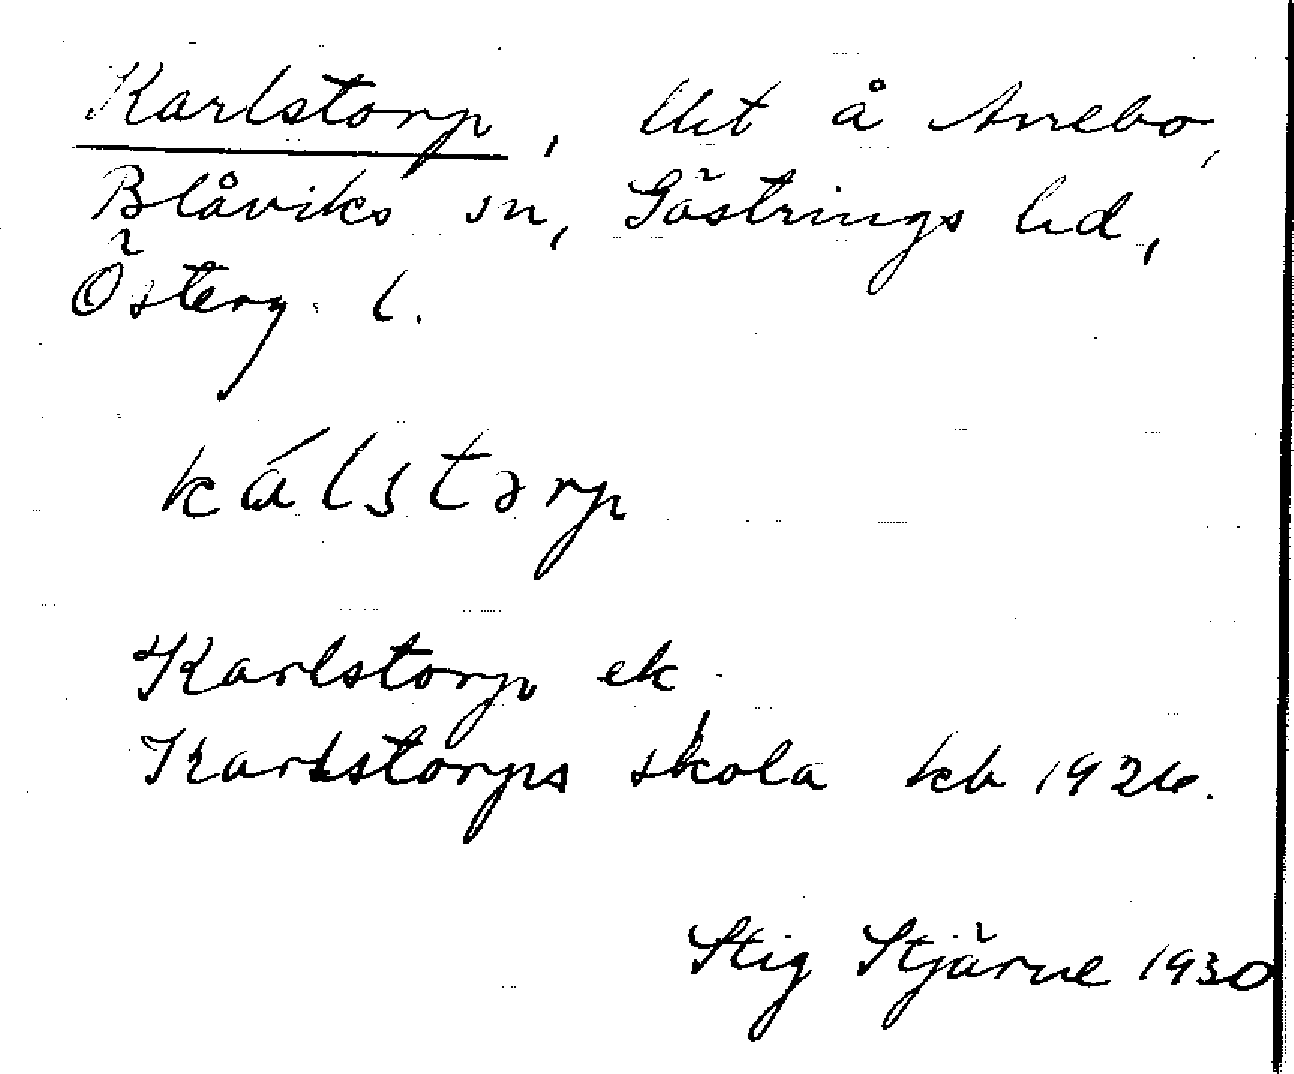 Karlstorp, lht å Anebo,
Blåviks sn, Göstrings hd,
Österg. l.
kálstərp
Karlstorp ek.
Karlstorps skola kb 1926.
Stig Stjärne 1930